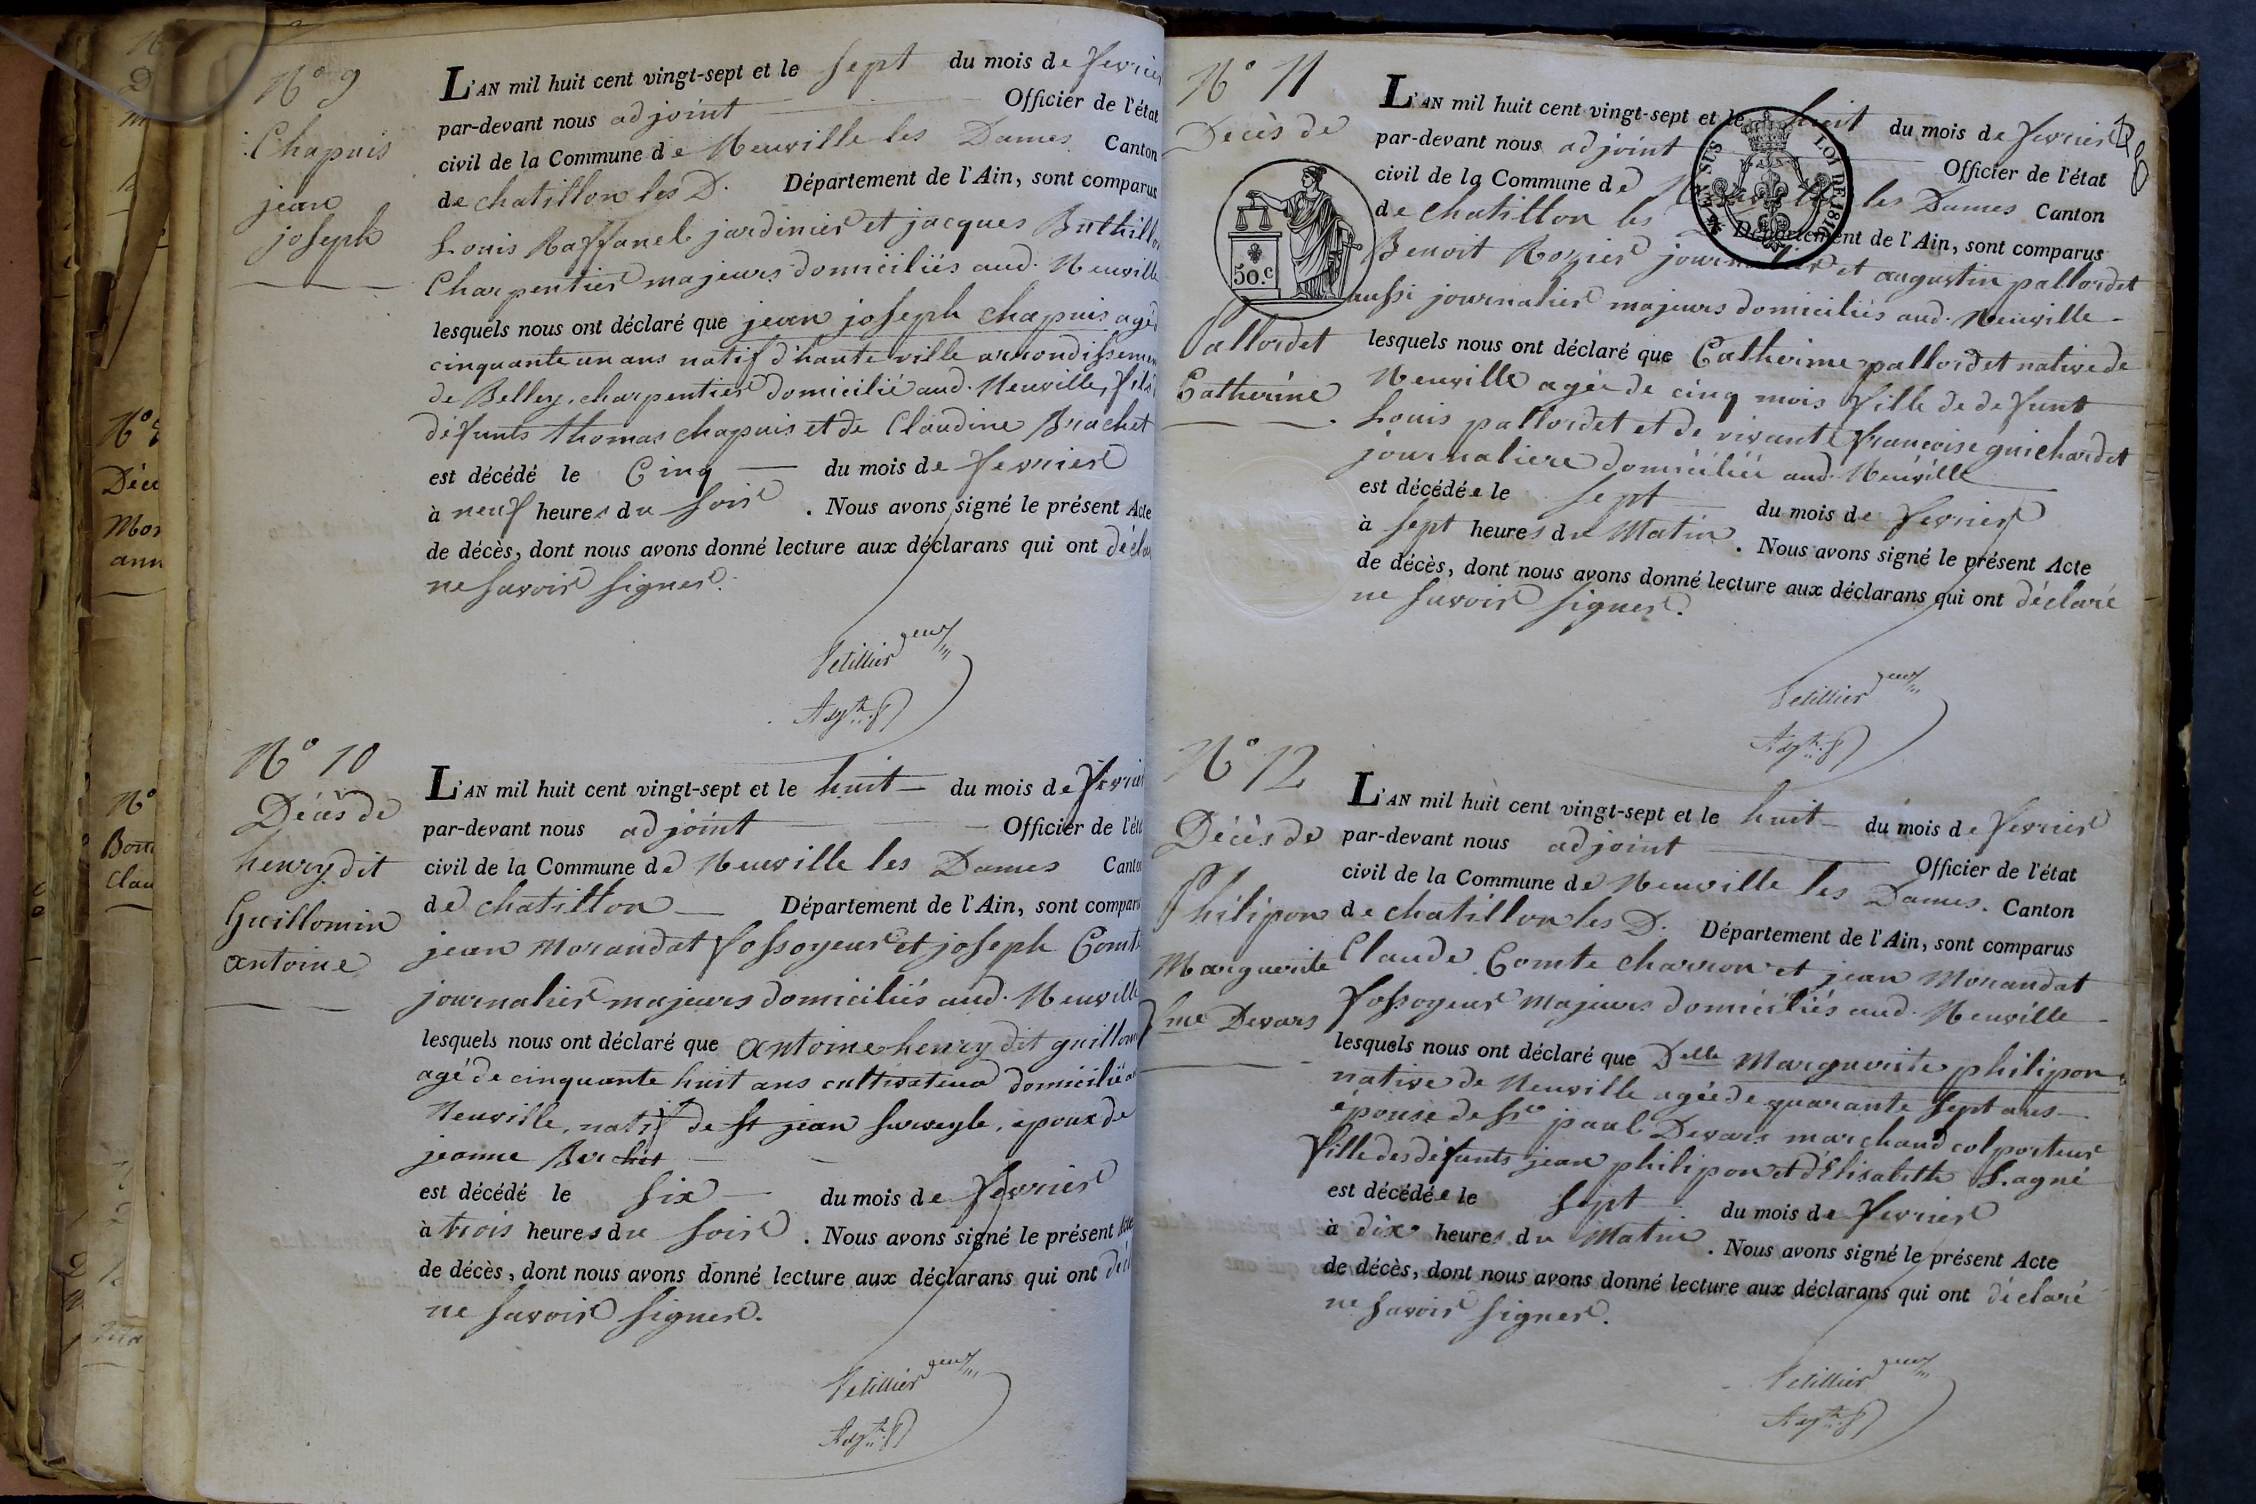 N° 9
Chapuis
jean
joseph
L'AN mil huit cent vingt-sept et le sept du mois de fevrier
par-devant nous adjoint Officier de l'état
civil de la Commune de Neuville les Dames Canton
de chatillon les D. Département de l'Ain, sont comparus
Louis Raffanel jardinier et jacques Buthillon
Charpentier majeurs domiciliés aud. Neuville
lesquels nous ont déclaré que jean joseph chapuis agé d
cinquante un ans natif d'hauteville arrondissemen
de Belley, charpentier domicilié aud. Neuville, fils d
défunts thomas chapuis et de Claudine Brachet
est décédé le Cinq du mois de fevrier
à neuf heures du soir . Nous avons signé le présent Acte
de décès, dont nous avons donné lecture aux déclarans qui ont décla
ne savoir signer.
Petillier
Adjt.
N° 10
Décès de
henry dit
Guillomin
antoine
L'AN mil huit cent vingt-sept et le huit du mois de fevrier
par-devant nous adjoint Officier de l'éta
civil de la Commune de Neuville les Dames Canton
de chatillon Département de l'Ain, sont comparu
jean Morandat fossoyeur et joseph Comte
journalier majeurs domiciliés aud. Neuville
lesquels nous ont déclaré que antoine henry dit guillom
agé de cinquante huit ans cultivateur domicilié a
Neuville, natif de st jean surveyle, epoux de
jeanne Berchet
est décédé le six du mois de fevrier
à trois heures du soir . Nous avons signé le présent Acte
de décès, dont nous avons donné lecture aux déclarans qui ont décl
ne savoir signer.
Petillier
Adjt.
N° 11
Décès de
50.c
Pallordet
Catherine
L'AN mil huit cent vingt-sept et le huit du mois de fevrier
par-devant nous adjoint Officier de l'état
civil de la Commune de Neuville les Dames Canton
de chatillon les D. Département de l'Ain, sont comparus
EN SUS LOI DE 1816
Benoit Rozier journalier et augustin pallordet
aussi journalier majeurs domiciliés aud. Neuville
lesquels nous ont déclaré que Catherine pallordet native de
Neuville agée de cinq mois fille de defunt
Louis pallordet et de vivante francoise guichardet
journaliere domiciliée aud. Neuville
est décédée le sept du mois de fevrier
à sept heures du Matin . Nous avons signé le présent Acte
de décès, dont nous avons donné lecture aux déclarans qui ont déclaré
ne savoir signer.
Petillier
Adjt.
N° 12
Décès de
Philipon
Marguerite
fme Devars
L'AN mil huit cent vingt-sept et le huit du mois de fevrier
par-devant nous adjoint Officier de l'état
civil de la Commune de Neuville les Dames. Canton
de chatillon les D. Département de l'Ain, sont comparus
Claude Comte charron et jean Morandat
fossoyeur Majeurs domiciliés aud. Neuville
lesquels nous ont déclaré que Delle Marguerite philipon
native de Neuville agée de quarante sept ans
épouse de sr paul Devars marchand colporteur
fille des défunts jean philipon et d'Elisabeth Lagné
est décédée le sept du mois de fevrier
à dix heures du Matin . Nous avons signé le présent Acte
de décès, dont nous avons donné lecture aux déclarans qui ont déclaré
ne savoir signer.
Petillier
Adjt.